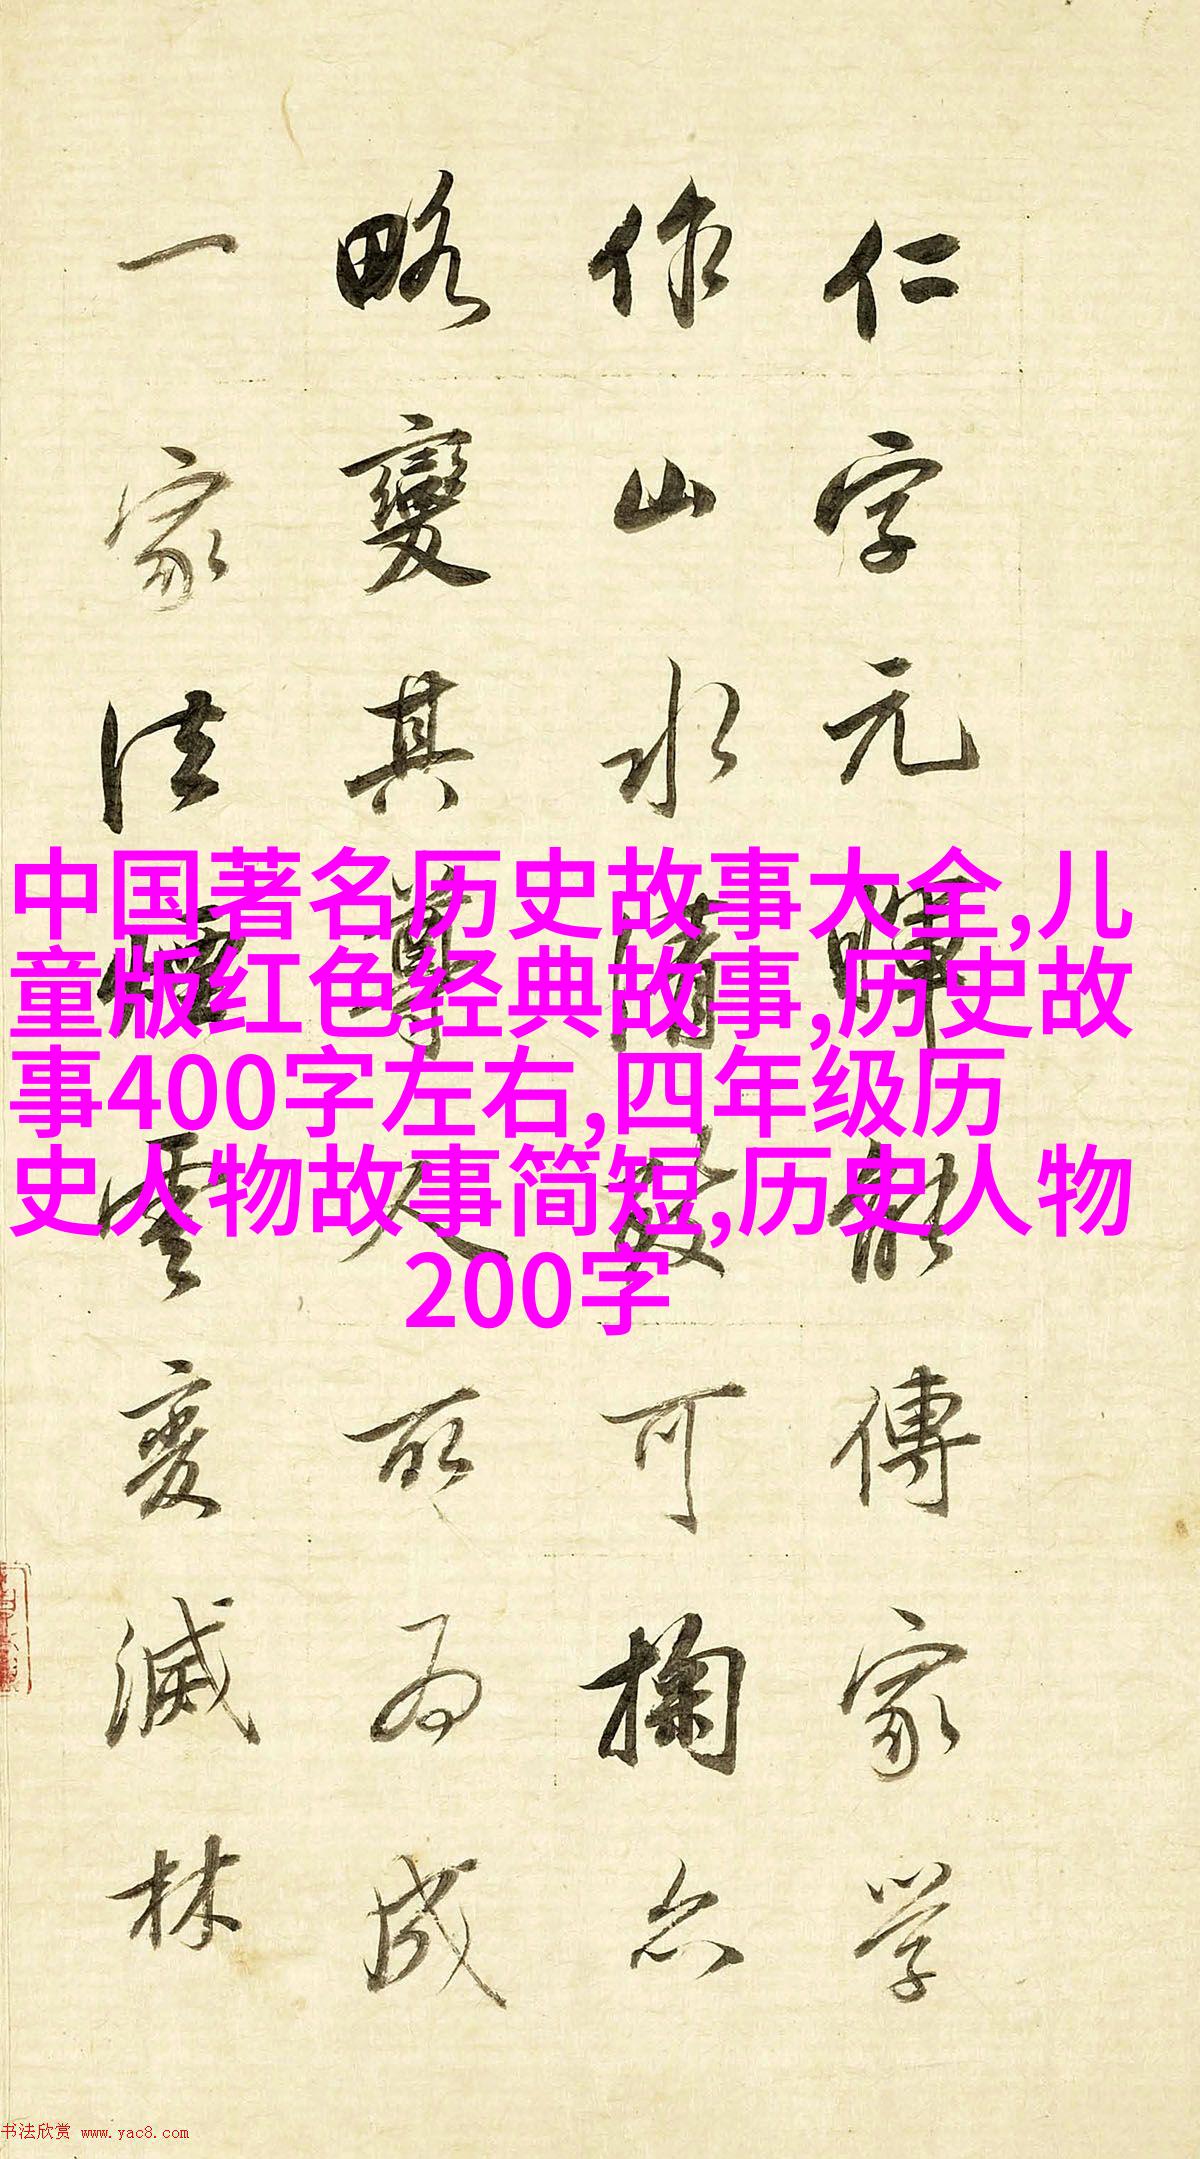 仁字元暉能傳家學
作山水清致可掬亦
略變其尊人所為成
一家法煙雲變滅林
中国著名历史故事大全,儿
童版红色经典故事,历史故
事400字左右,四年级历
史人物故事简短,历史人物
200字
书法欣赏 www.yac8.com